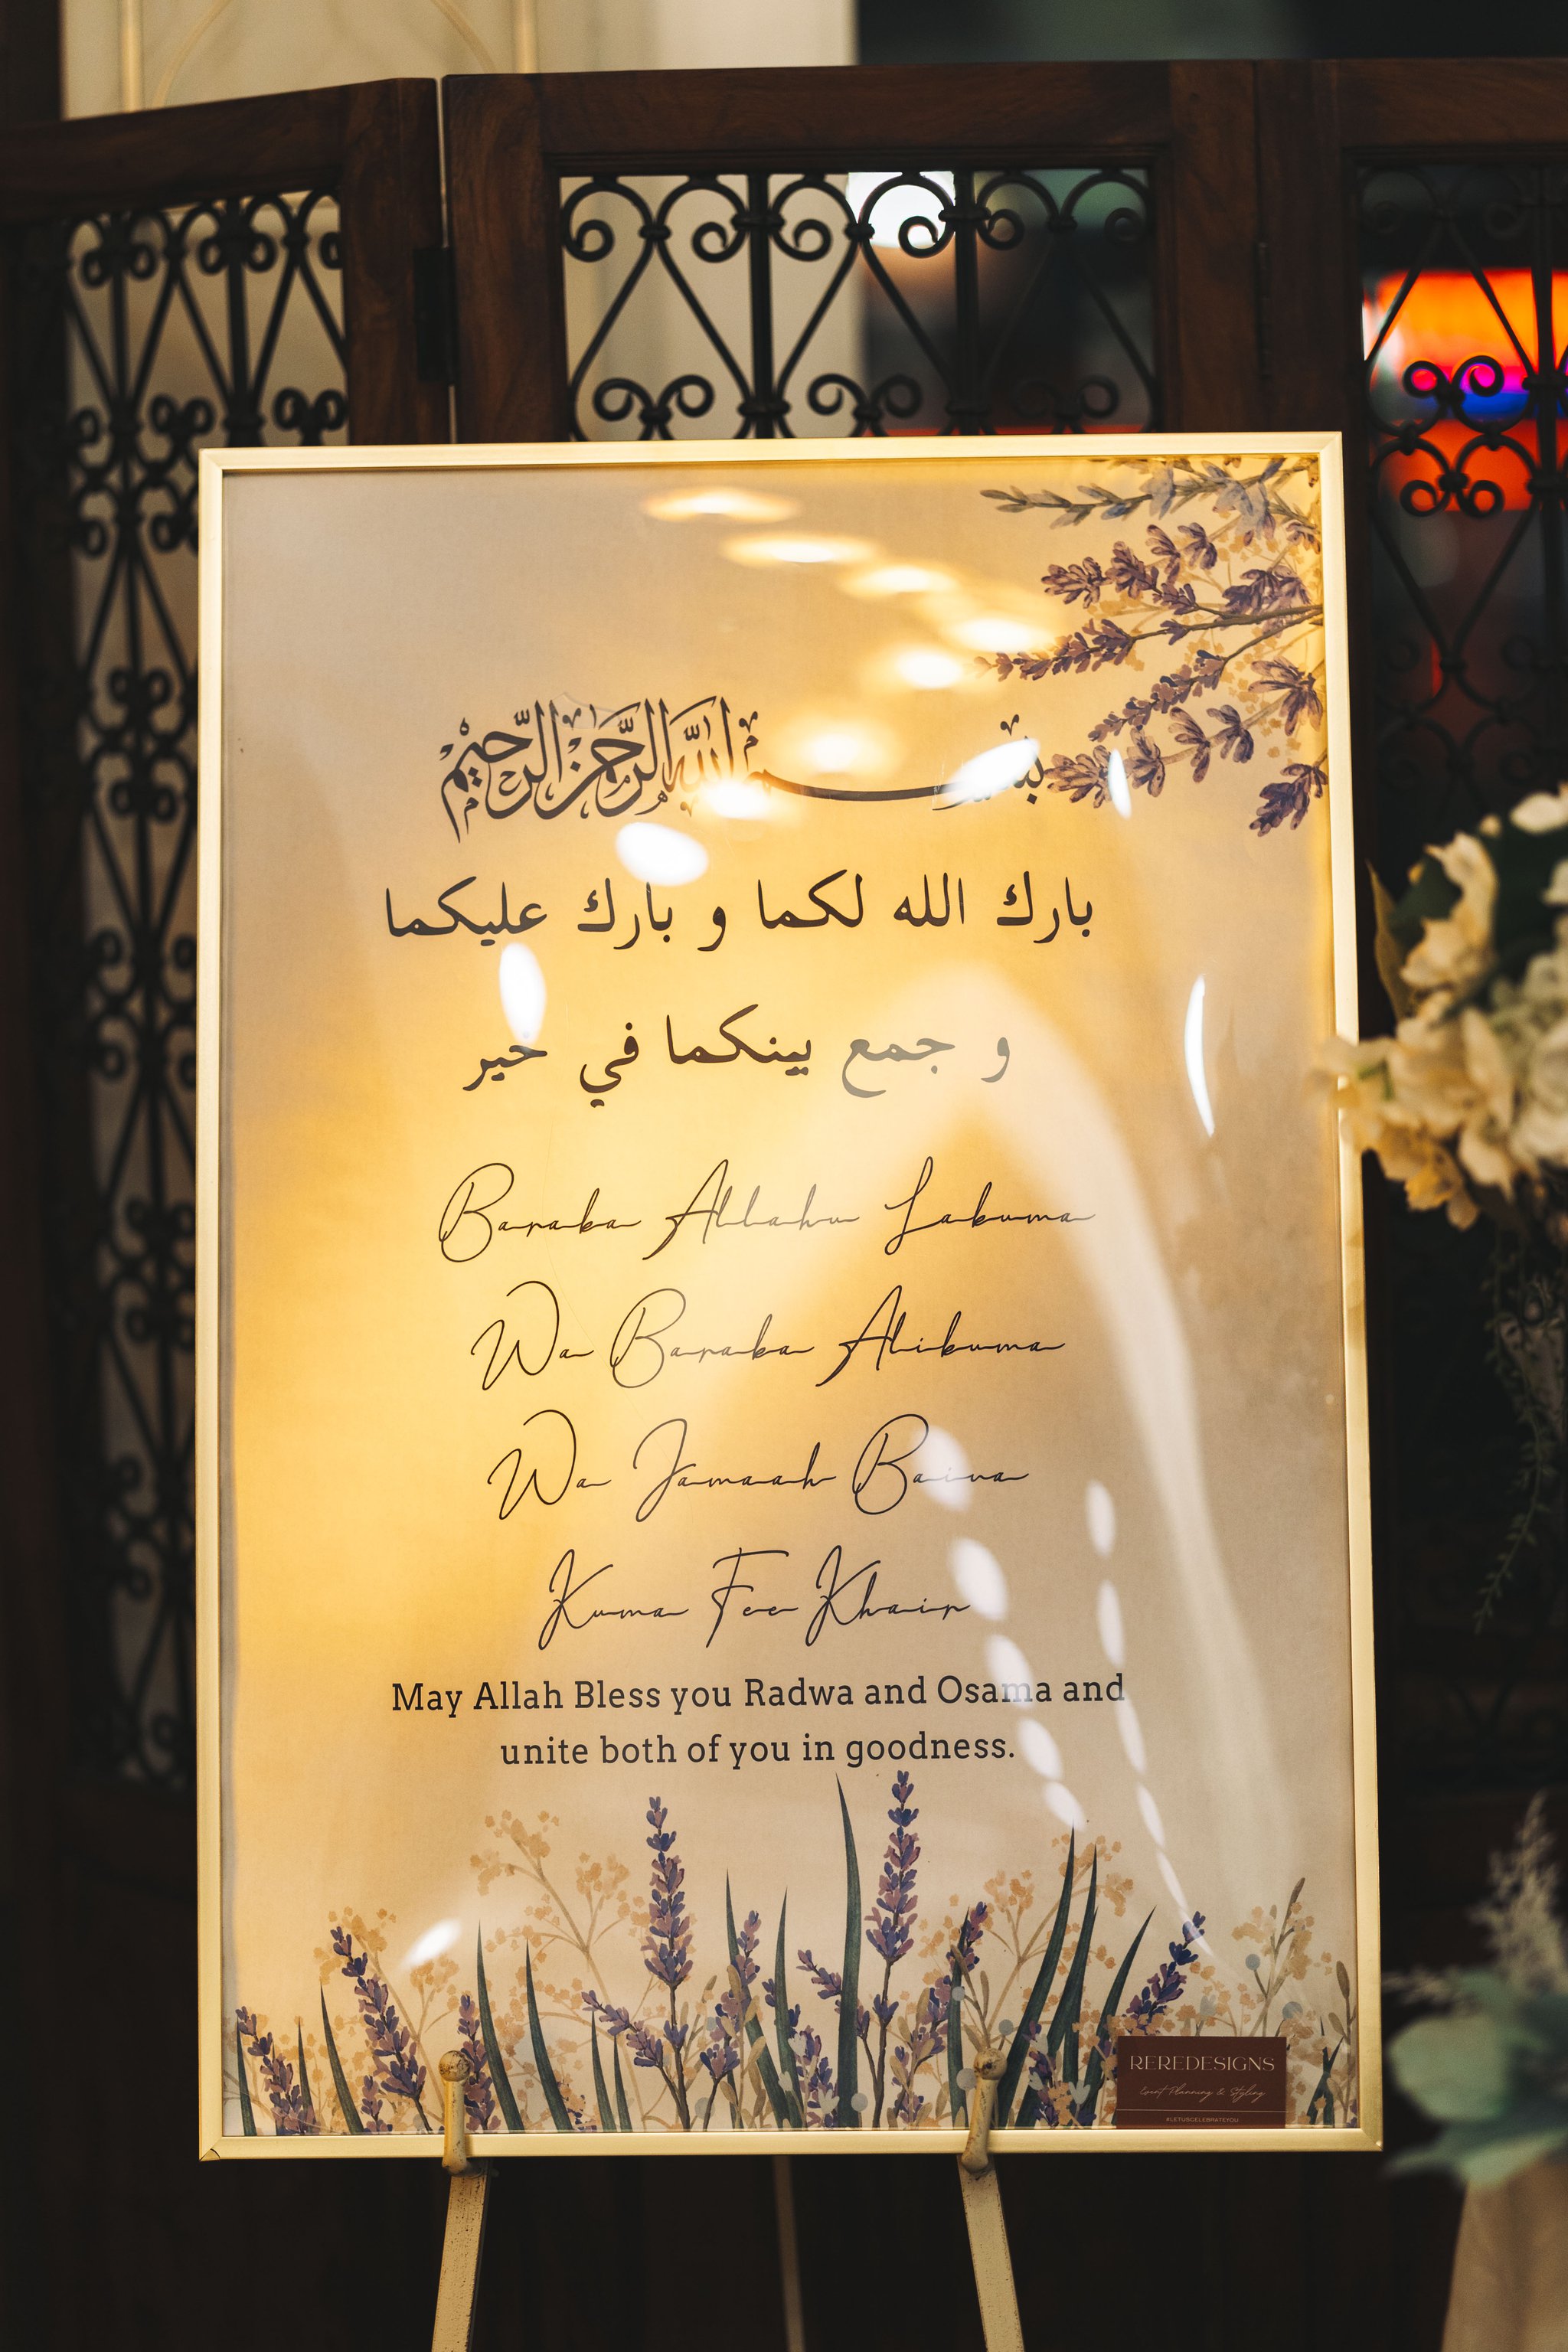 بسم الله الرحمن الرحيم
بارك الله لكما و بارك عليكما
و جمع بينكما في خير
Baraka Allahu Lakuma
Wa Baraka Alikuma
Wa Jamaah Baina
Kuma Fee Khair
May Allah Bless you Radwa and Osama and
unite both of you in goodness.
REREDESIGNS
Event Planning & Styling
#LETUSCELEBRATEYOU